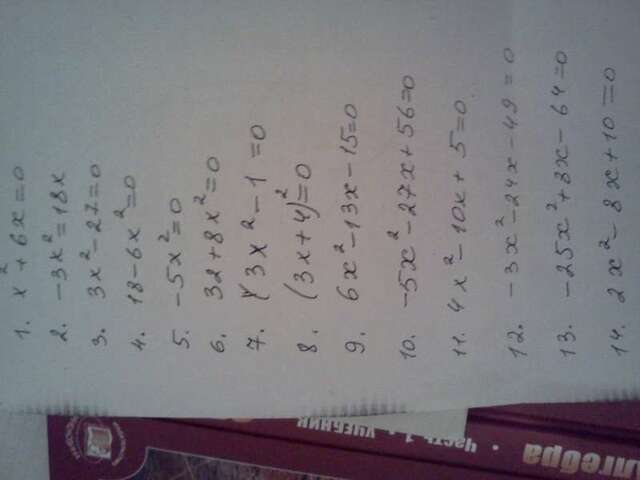 1. x² + 6x = 0
2. -3x² = 18x
3. 3x² - 27 = 0
4. 18 - 6x² = 0
5. -5x² = 0
6. 32 + 8x² = 0
7. 3x² - 1 = 0
8. (3x + 4)² = 0
9. 6x² - 13x - 15 = 0
10. -5x² - 27x + 56 = 0
11. 4x² - 10x + 5 = 0.
12. -3x² - 24x - 49 = 0
13. -25x² + 8x - 64 = 0
14. 2x² - 8x + 10 = 0
часть 1 • УЧЕБНИК
алгебра